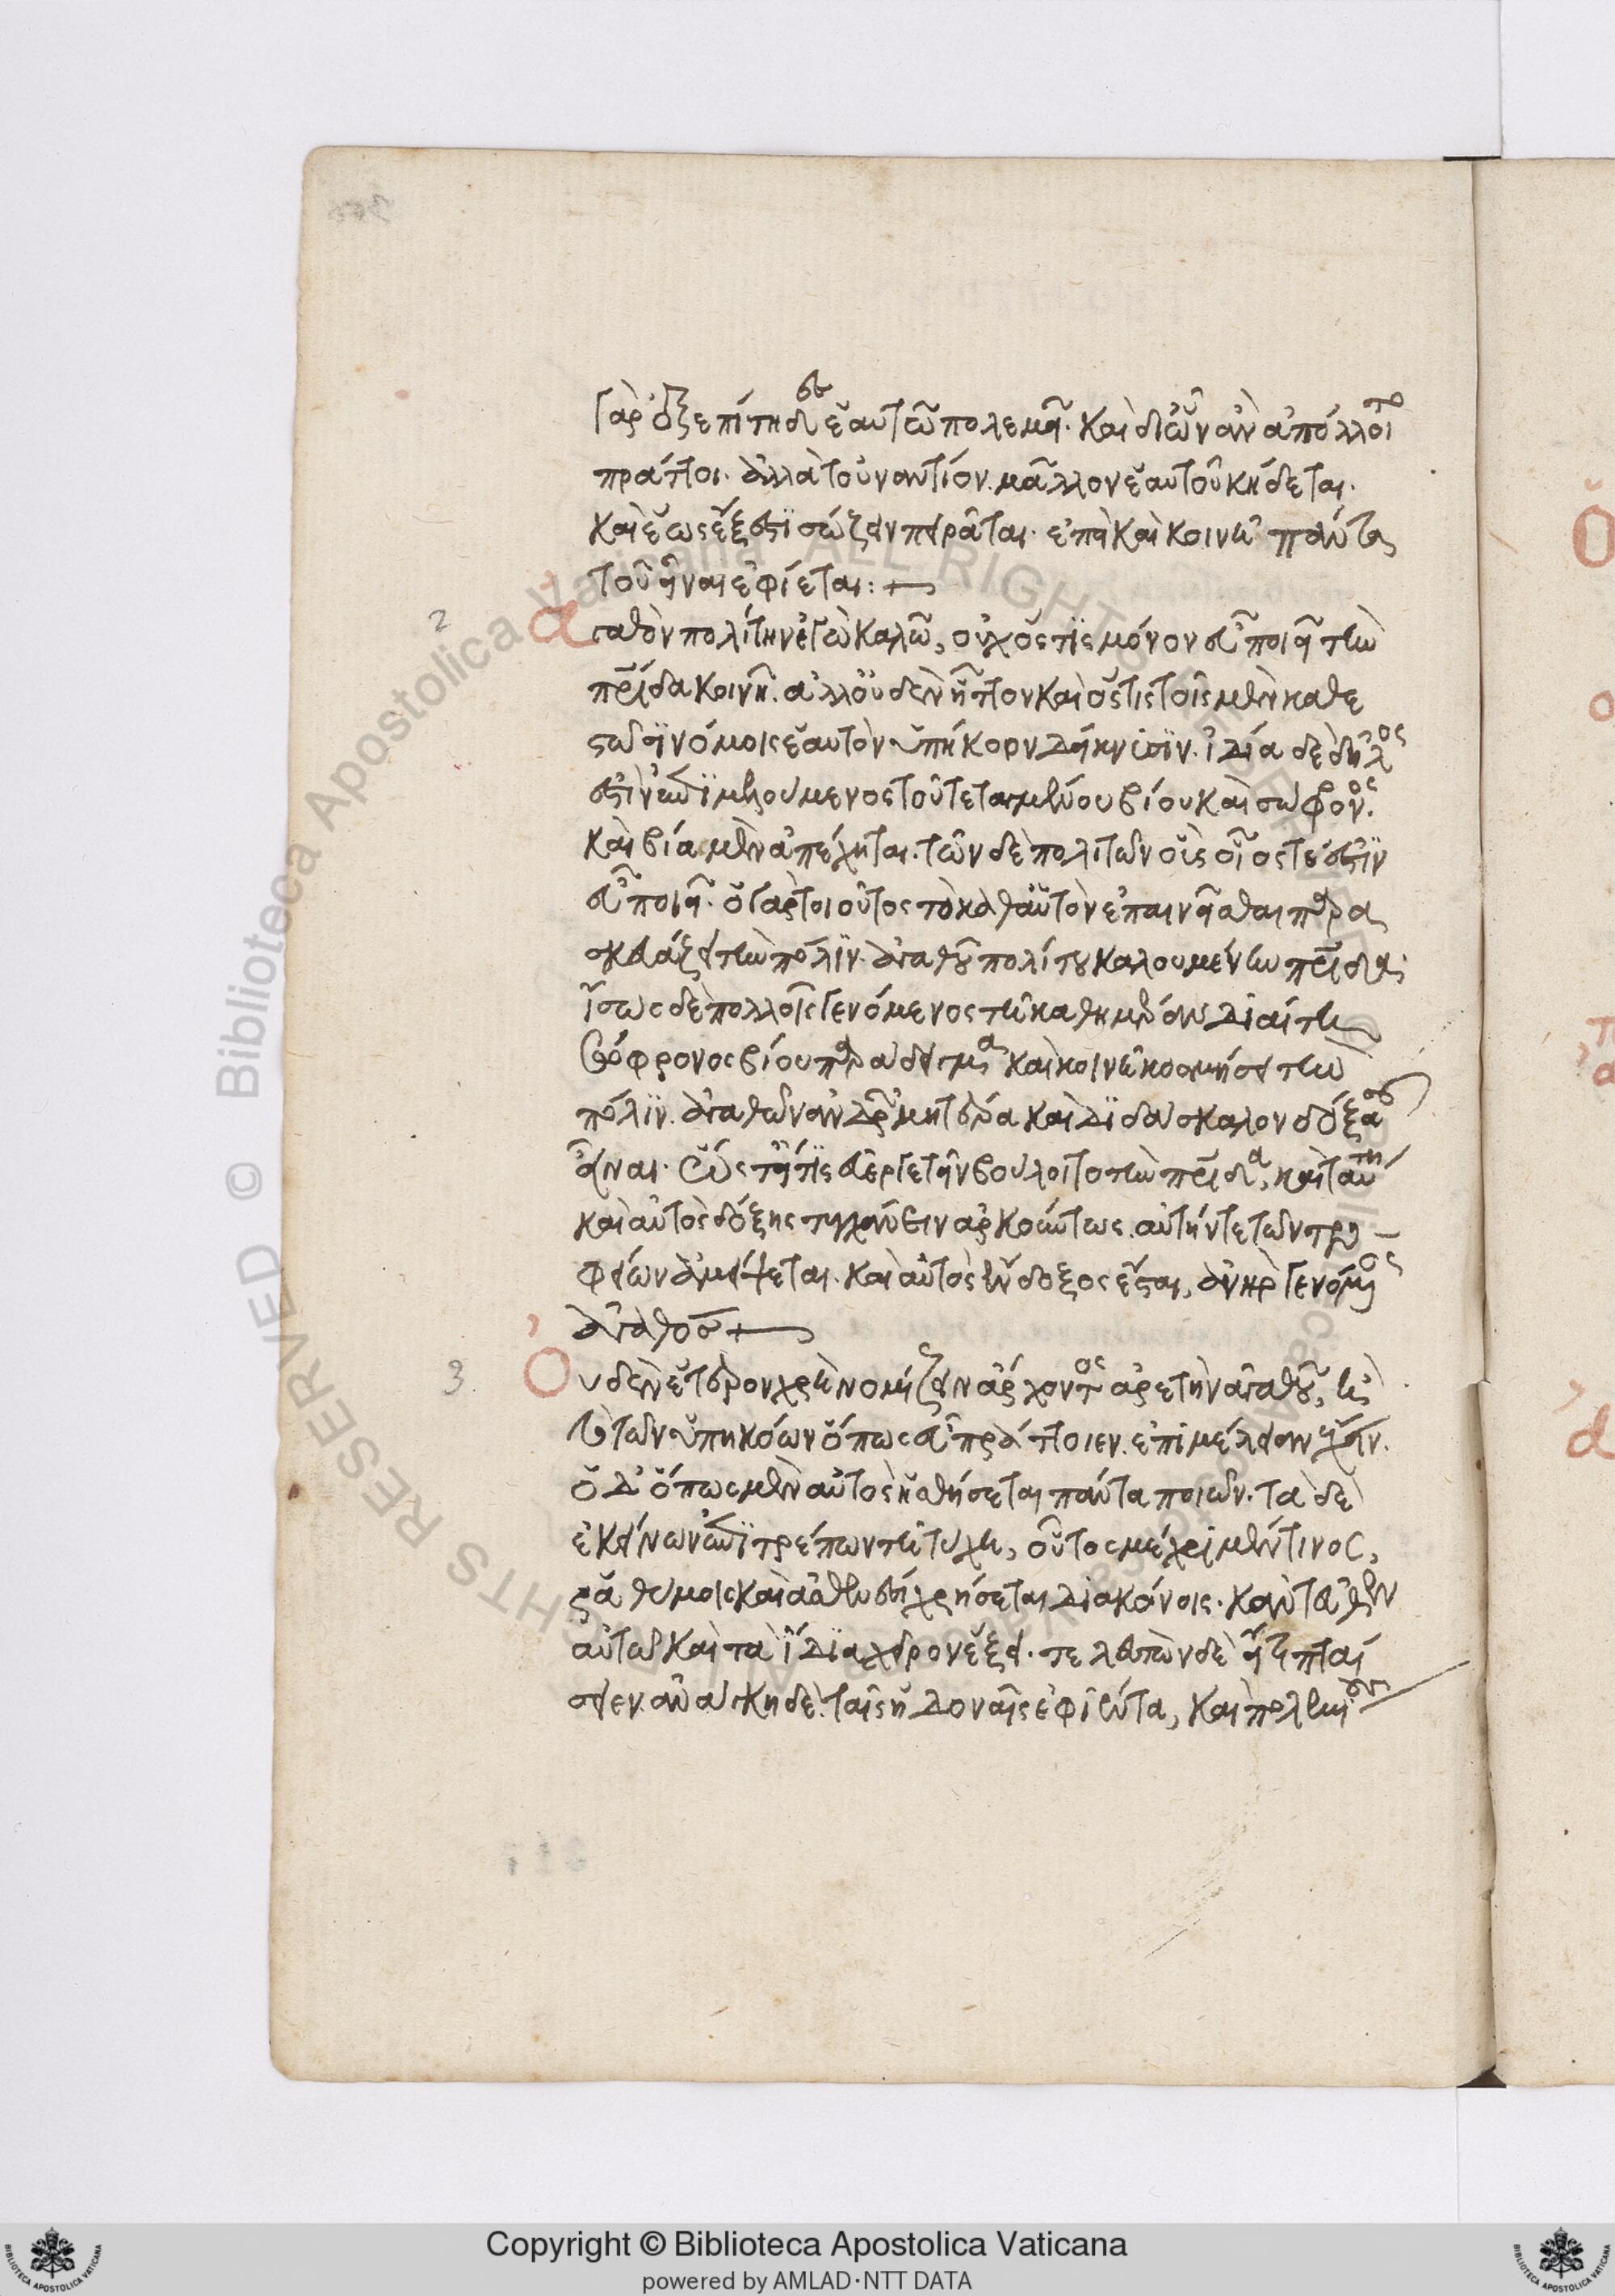 γὰρ ἐξεπίτηδες ἑαυτῶ πολεμεῖ. καὶ δι᾽ ὧν ἂν ἀπόλλοιτο
πράττοι. ἀλλὰ τοὐναντίον. μᾶλλον ἑαυτοῦ κήδεται.
καὶ ἕως ἔξεστι σώζειν πειρᾶται. ἐπεὶ καὶ κοινῆ πάντα
τοῦ εἶναι ἐφίεται:
2 ἀγαθὸν πολίτην ἐγὼ καλῶ, οὐχ ὅς τις μόνον εὖ ποιεῖ τὴν
πρίδα κοινῆ. ἀλλ᾽ οὐδὲν ἧττον καὶ ὅστις τοῖς μὲν καθε
νόμοις ἑαυτὸν ὑπήκοον δείκνυσιν. ἰδία δὲ δῆλος
ἐστὶν ἐπιμελούμενος τοῦ τεταγμένου βίου καὶ σώφρονος.
καὶ βία μὲν ἀπέχηται. τῶν δὲ πολιτῶν οἷς οἷός τέ ἐστιν
εὖ ποιεῖ. ὁ γὰρ τοιοῦτος τὸ καθ᾽ αὑτὸν ἐπαινεῖσθαι παρα
σκευάζει τὴν πόλιν. ἀγαθοῦ πολίτου καλουμένην πρίδα.
ἴσως δὲ πολλοῖς γενόμενος τῆ καθημερινῆ διαίτη
σώφρονος βίου παράδειγμα καὶ κοινῆ κοσμήσει τὴν
πόλιν. ἀγαθῶν ἀνδρῶν μητέρα καὶ διδάσκαλον δόξασαν
εἶναι. ὥστ᾽ εἴ τις εὐεργετεῖν βούλοιτο τὴν πρίδα, καὶ ταύτη
καὶ αὐτὸς δόξης τυγχάνειν ἀρκούντως. αὐτήν τε τῶν τρο
φείων ἀμείψεται. καὶ αὐτὸς ἔνδοξος ἔσται, ἀνὴρ γενόμενος
ἀγαθός
3 οὐδὲν ἕτερον χρὴ νομίζειν ἄρχοντος ἀρετὴν ἀγαθοῦ, ἢ
τὸ τῶν ὑπηκόων ὅπως εὖ πράττοιεν. ἐπιμέλειαν ἔχειν.
ὁ δ᾽ ὅπως μὲν αὐτὸς ἡσθήσεται πάντα ποιῶν. τὰ δὲ
ἐκείνων ἐπιτρέπων τῆ τύχη, οὗτος μέχρι μέν τινος,
ῥαθύμοις καὶ χρήσεται διακόνοις. κἀντεῦθεν
αὐτῶ καὶ τὰ ἴδια χεῖρον ἕξει. τελευτῶν δὲ
ἀνάγκη δὲ ταῖς ἡδοναῖς ἐφιέντα, καὶ